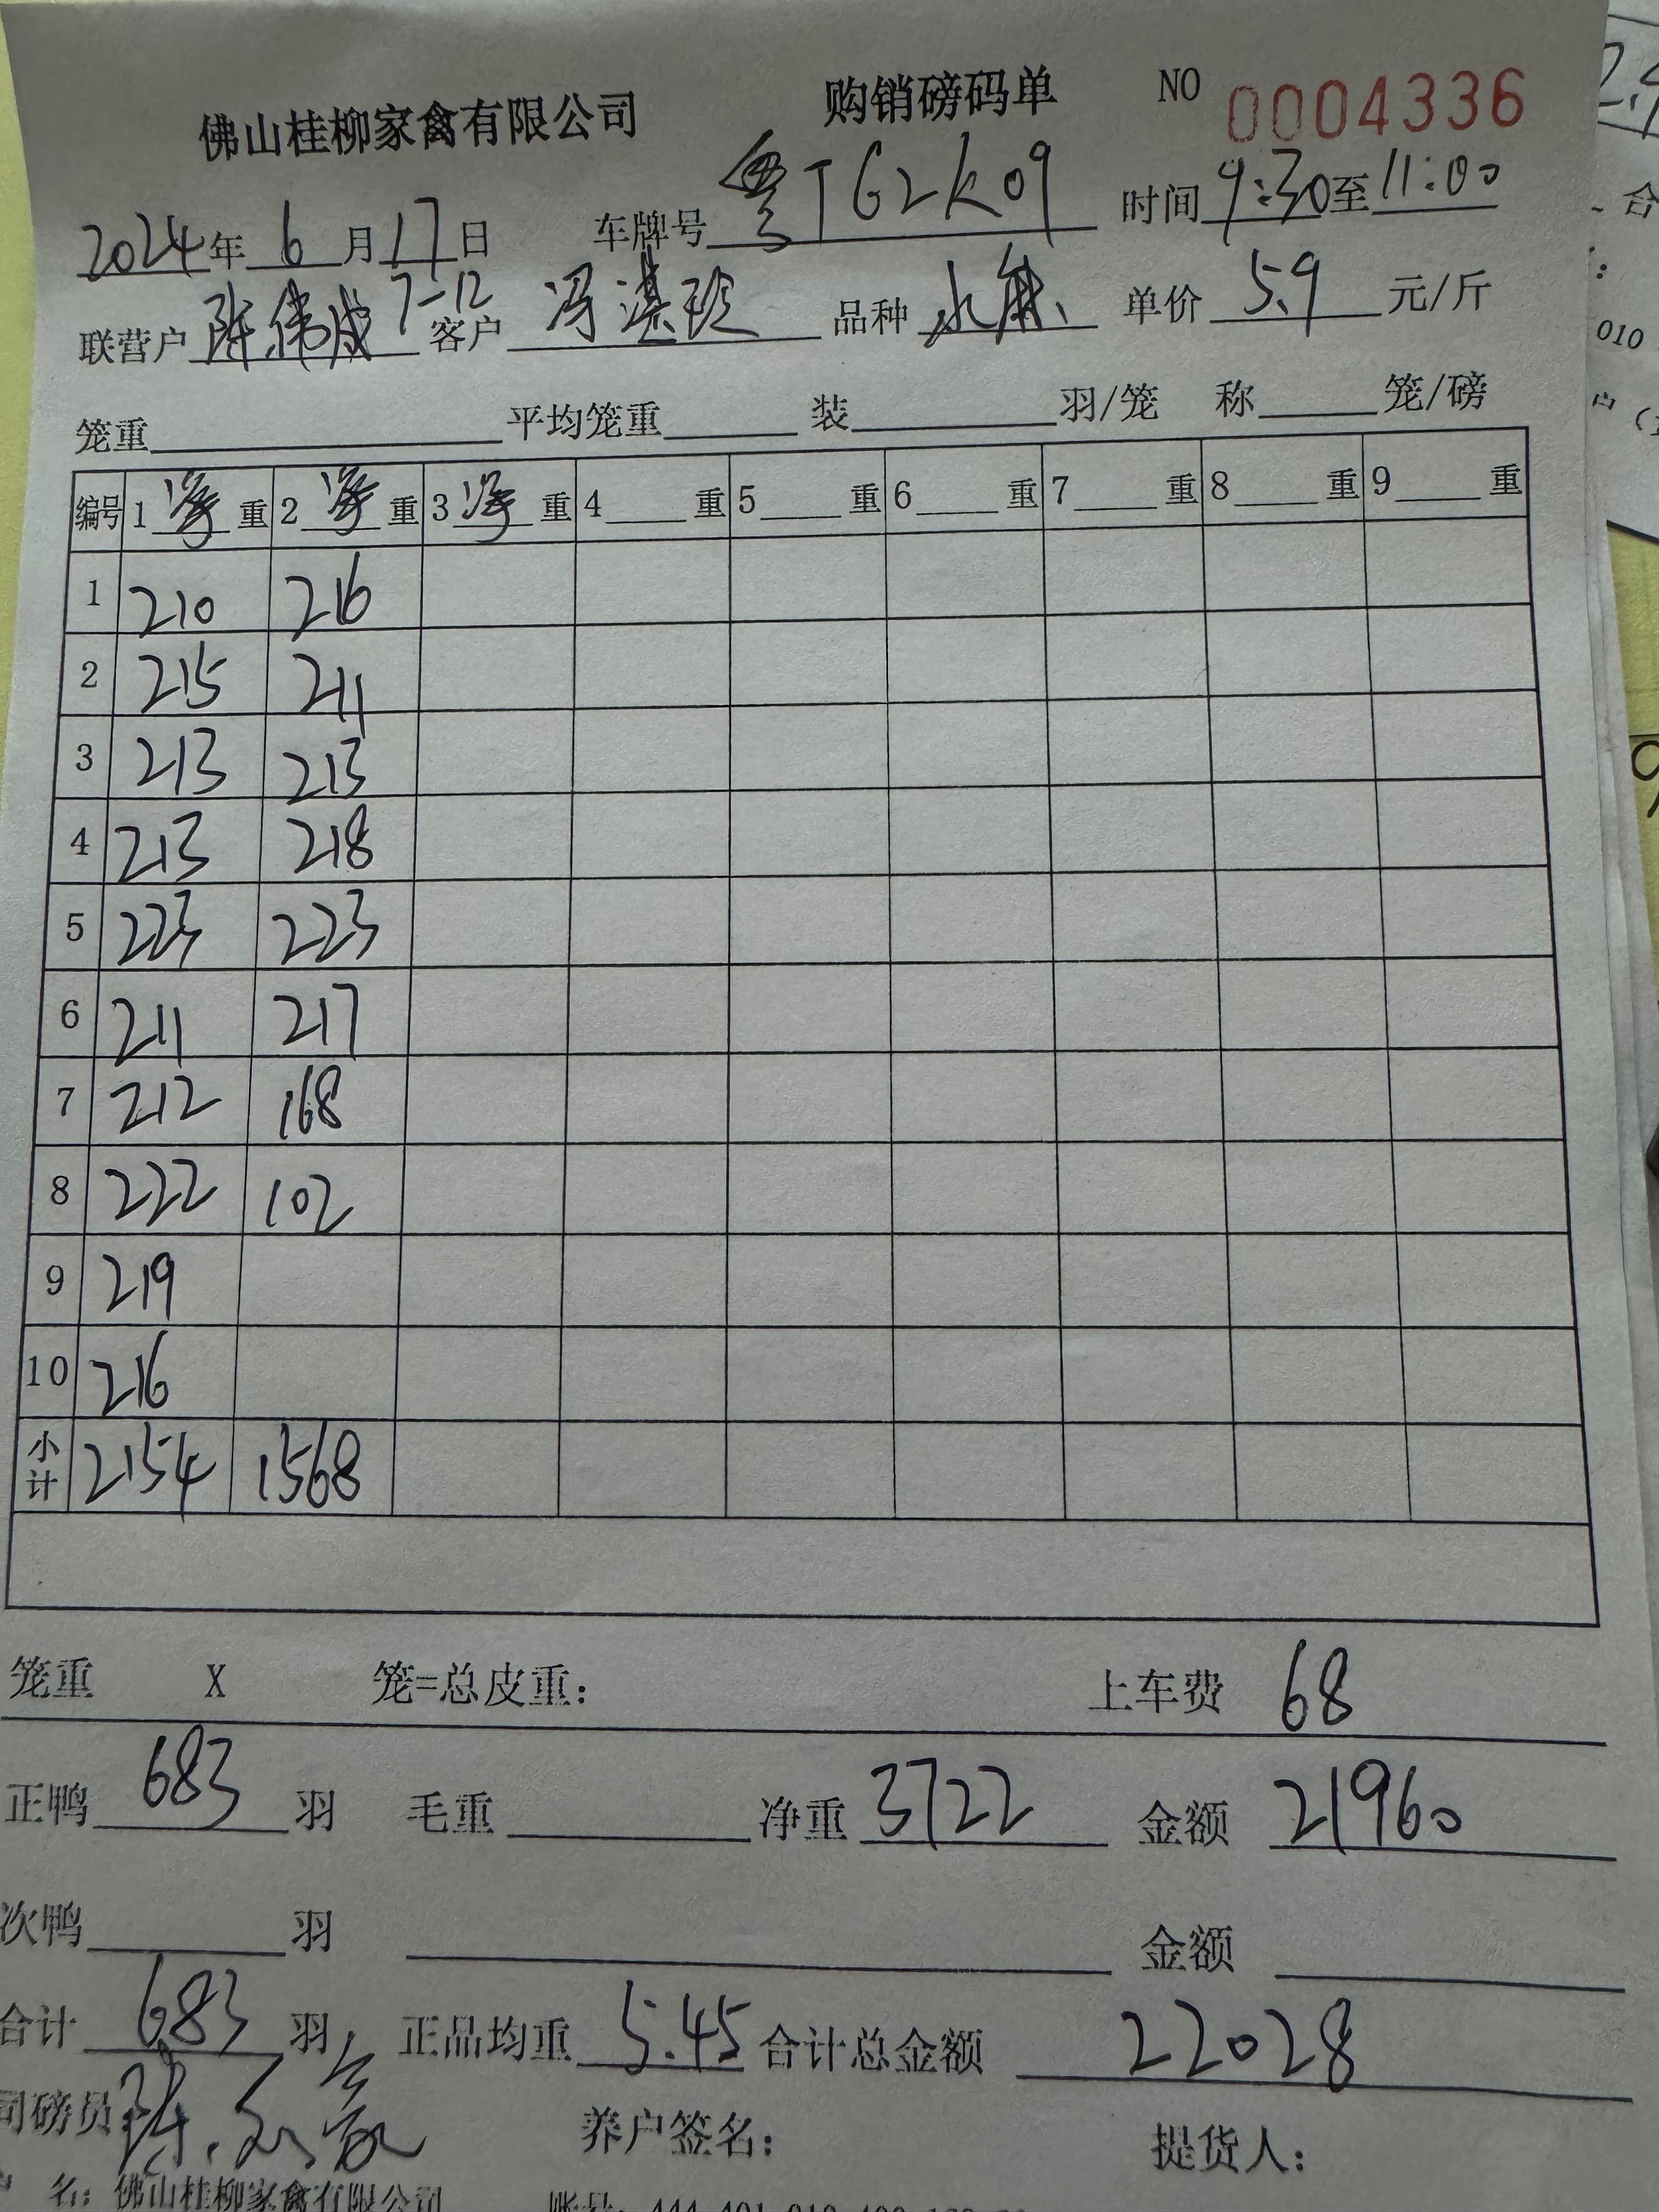 佛山桂柳家禽有限公司 购销磅码单 NO 0004336
2024年6月17日 车牌号 粤TG2K09 时间 9:30至11:00
联营户 陈伟成 7-12 客户 冯湛玲 品种 水鸭 单价 5.9 元/斤
笼重 平均笼重 装 羽/笼 称 笼/磅
编号 1 净 重 2 净 重 3 净 重 4 重 5 重 6 重 7 重 8 重 9 重
1 210 216
2 215 211
3 213 213
4 213 218
5 223 223
6 211 217
7 212 168
8 222 102
9 219
10 216
小计 2154 1568
笼重 X 笼=总皮重: 上车费 68
正鸭 683 羽 毛重 净重 3722 金额 21960
次鸭 羽 金额
合计 683 羽 正品均重 5.45 合计总金额 22028
司磅员 养户签名: 提货人:
名: 佛山桂柳家禽有限公司